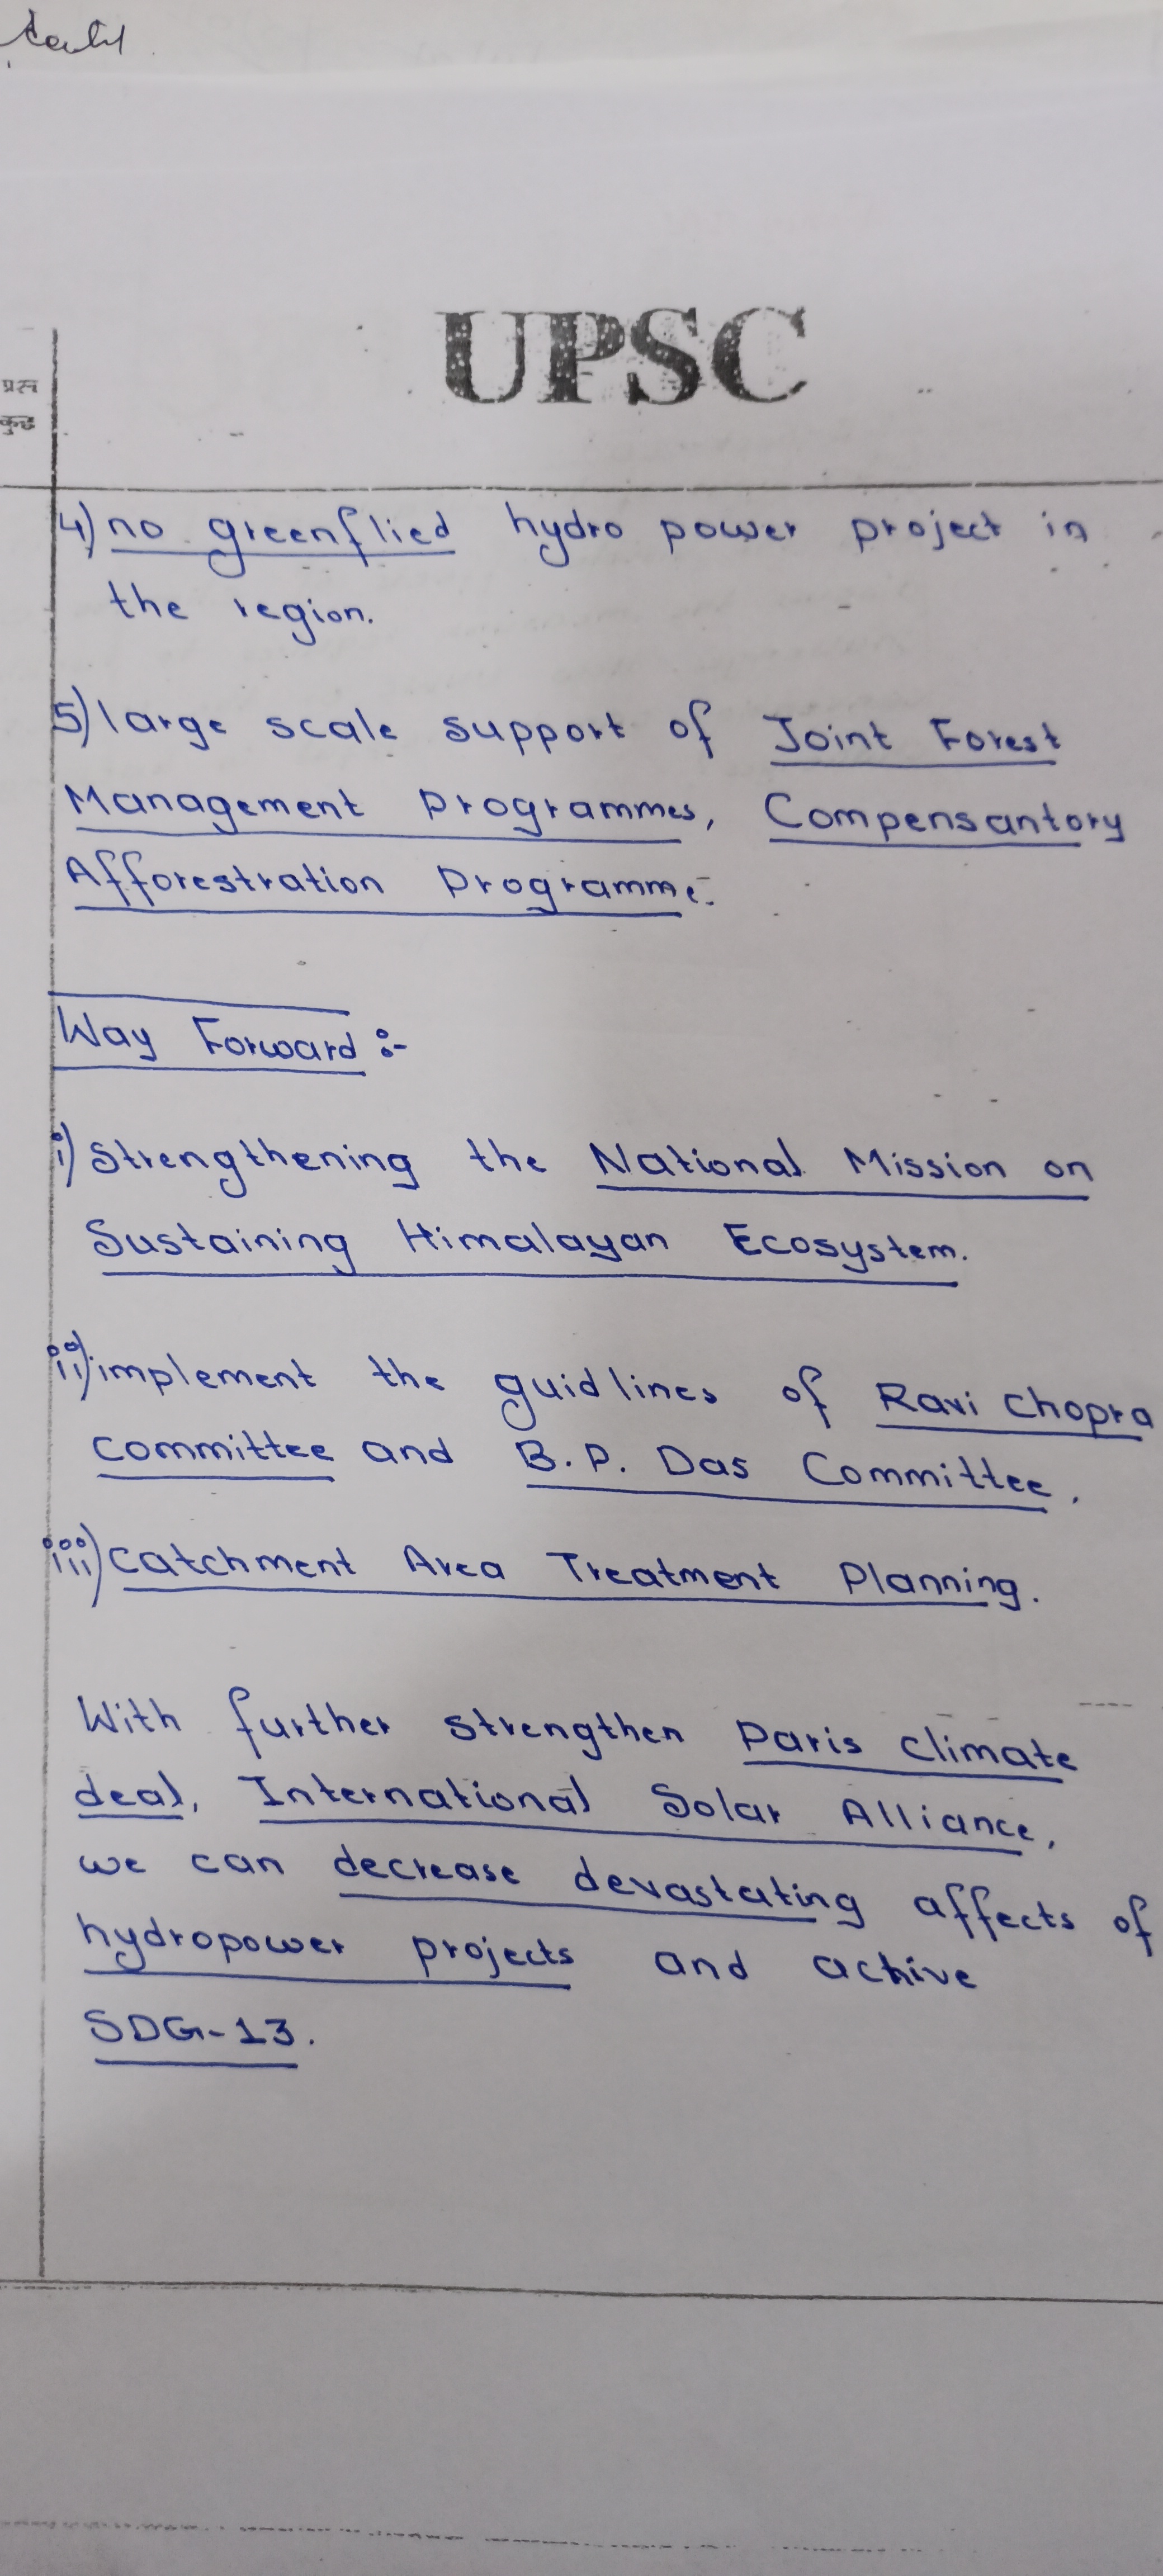 UPSC
प्रश्न
4) no greenflied hydro power project in
the region.
5) large scale support of Joint Forest
Management Programmes, Compensantory
Afforestration Programme.
Way Forward :-
i) Strengthening the National Mission on
Sustaining Himalayan Ecosystem.
ii) implement the guidlines of Ravi Chopra
committee and B.P. Das Committee.
iii) Catchment Area Treatment Planning.
With further strengthen Paris climate
deal, International Solar Alliance,
we can decrease devastating affects of
hydropower projects and achive
SDG-13.